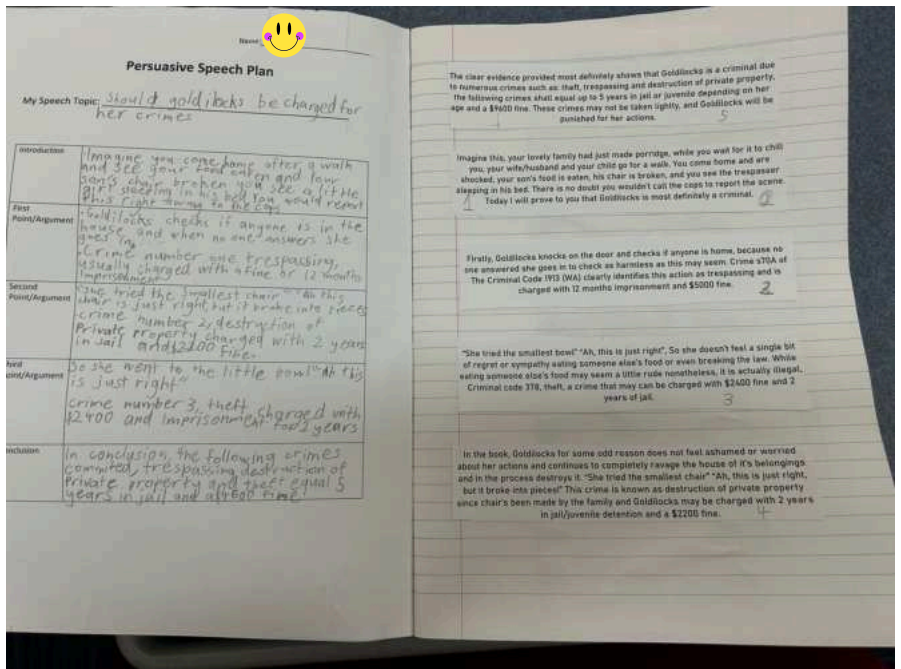 Name:
Persuasive Speech Plan
My Speech Topic: Should goldilocks be charged for
her crimes
Introduction
"Imagine you come home after a walk
and see your food eaten and your
son's chair broken you see a little
girl sleeping in his bed you would report
this right away to the cops
First
Point/Argument
·Goldilocks checks if anyone is in the
house and when no one answers she
goes in.
·Crime number one trespassing,
usually charged with a fine or 12 months
imprisonment
Second
Point/Argument
"She tried the smallest chair" "Ah this
chair is just right, but it brake into pieces
crime number 2, destruction of
Private property charged with 2 years
in jail and $2200 fine.
Third
Point/Argument
So she went to the little bowl "Ah this
is just right"
crime number 3, theft charged with
$2400 and imprisonment for 2 years
Conclusion
In conclusion, the following crimes
commited, trespassing, destruction of
Private property and theft equal 5
years in jail and a $9600 fine!
The clear evidence provided most definitely shows that Goldilocks is a criminal due
to numerous crimes such as: theft, trespassing and destruction of private property,
the following crimes shall equal up to 5 years in jail or juvenile depending on her
age and a $9600 fine. These crimes may not be taken lightly, and Goldilocks will be
punished for her actions.
5
Imagine this, your lovely family had just made porridge, while you wait for it to chill
you, your wife/husband and your child go for a walk. You come home and are
shocked, your son's food is eaten, his chair is broken, and you see the trespasser
sleeping in his bed. There is no doubt you wouldn't call the cops to report the scene.
Today I will prove to you that Goldilocks is most definitely a criminal.
1
Firstly, Goldilocks knocks on the door and checks if anyone is home, because no
one answered she goes in to check as harmless as this may seem. Crime s70A of
The Criminal Code 1913 (WA) clearly identifies this action as trespassing and is
charged with 12 months imprisonment and $5000 fine.
2
"She tried the smallest bowl" "Ah, this is just right", So she doesn't feel a single bit
of regret or sympathy eating someone else's food or even breaking the law. While
eating someone else's food may seem a little rude nonetheless, it is actually illegal,
Criminal code 378, theft, a crime that may be charged with $2400 fine and 2
years of jail.
3
In the book, Goldilocks for some odd reason does not feel ashamed or worried
about her actions and continues to completely ravage the house of it's belongings
and in the process destroys it. "She tried the smallest chair" "Ah, this is just right,
but it broke into pieces!" This crime is known as destruction of private property
since chair's been made by the family and Goldilocks may be charged with 2 years
in jail/juvenile detention and a $2200 fine.
4